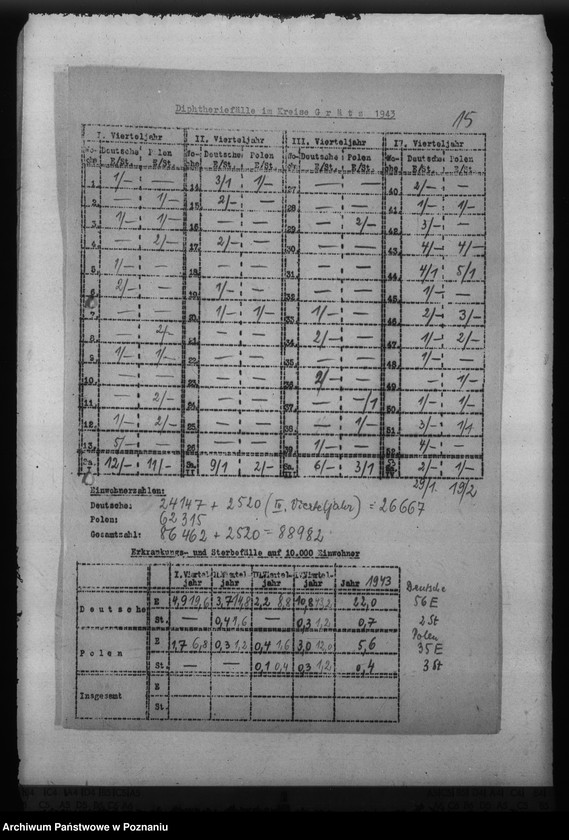 Diphtheriefälle im Kreise G r ä t z 1943
15
I. Vierteljahr II. Vierteljahr III. Vierteljahr IV. Vierteljahr
Wo-che Deutsche E/St. Polen E/St. Wo-che Deutsche E/St. Polen E/St. Wo-che Deutsche E/St. Polen E/St. Wo-che Deutsche E/St. Polen E/St.
1. 1/- 14. 3/1 1/- 27. — — 40. 2/- —
2. — 1/- 15. 2/- — 28. — — 41. 1/- 1/-
3. 1/- 1/- 16. — — 29. — 2/- 42. 3/- —
4. — 2/- 17. 2/- — 30. — — 43. 4/- 4/-
5. 1/- — 18. — — 31. — — 44. 4/1 5/1
6. 2/- — 19. 1/- — 32. — — 45. 1/- —
7. — — 20. 1/- 1/- 33. 1/- — 46. 2/- 3/-
8. — 2/- 21. — — 34. 2/- — 47. 1/- 2/-
9. 1/- 1/- 22. — — 35. — — 48. 1/- —
10. — — 23. — — 36. 2/- — 49. — 1/-
11. — 2/- 24. — — 37. — -/1 50. 1/- 1/-
12. 1/- 2/- 25. — — 38. — 1/- 51. 3/- 1/1
13. 5/- — 26. — — 39. 1/- — 52. 4/- —
Sa. I 12/- 11/- Sa. II 9/1 2/- Sa. III 6/- 3/1 2/- 1/-
29/1. 19/2
Einwohnerzahlen:
Deutsche: 24147 + 2520 (IV. Vierteljahr) = 26667
Polen: 62315
Gesamtzahl: 86462 + 2520 = 88982
Erkrankungs- und Sterbefälle auf 10.000 Einwohner
I.Viertel-jahr II.Viertel-jahr III.Viertel-jahr IV.Viertel-jahr Jahr 1943
D e u t s c h e E 4,9 19,6 3,7 14,8 2,2 8,8 10,8 43,2 22,0
St. — 0,4 1,6 — 0,3 1,2 0,7
P o l e n E 1,7 6,8 0,3 1,2 0,4 1,6 3,0 12,0 5,6
St. — — 0,1 0,4 0,3 1,2 0,4
Insgesamt E
St.
Deutsche
56 E
2 St
Polen
35 E
3 St
Archiwum Państwowe w Poznaniu